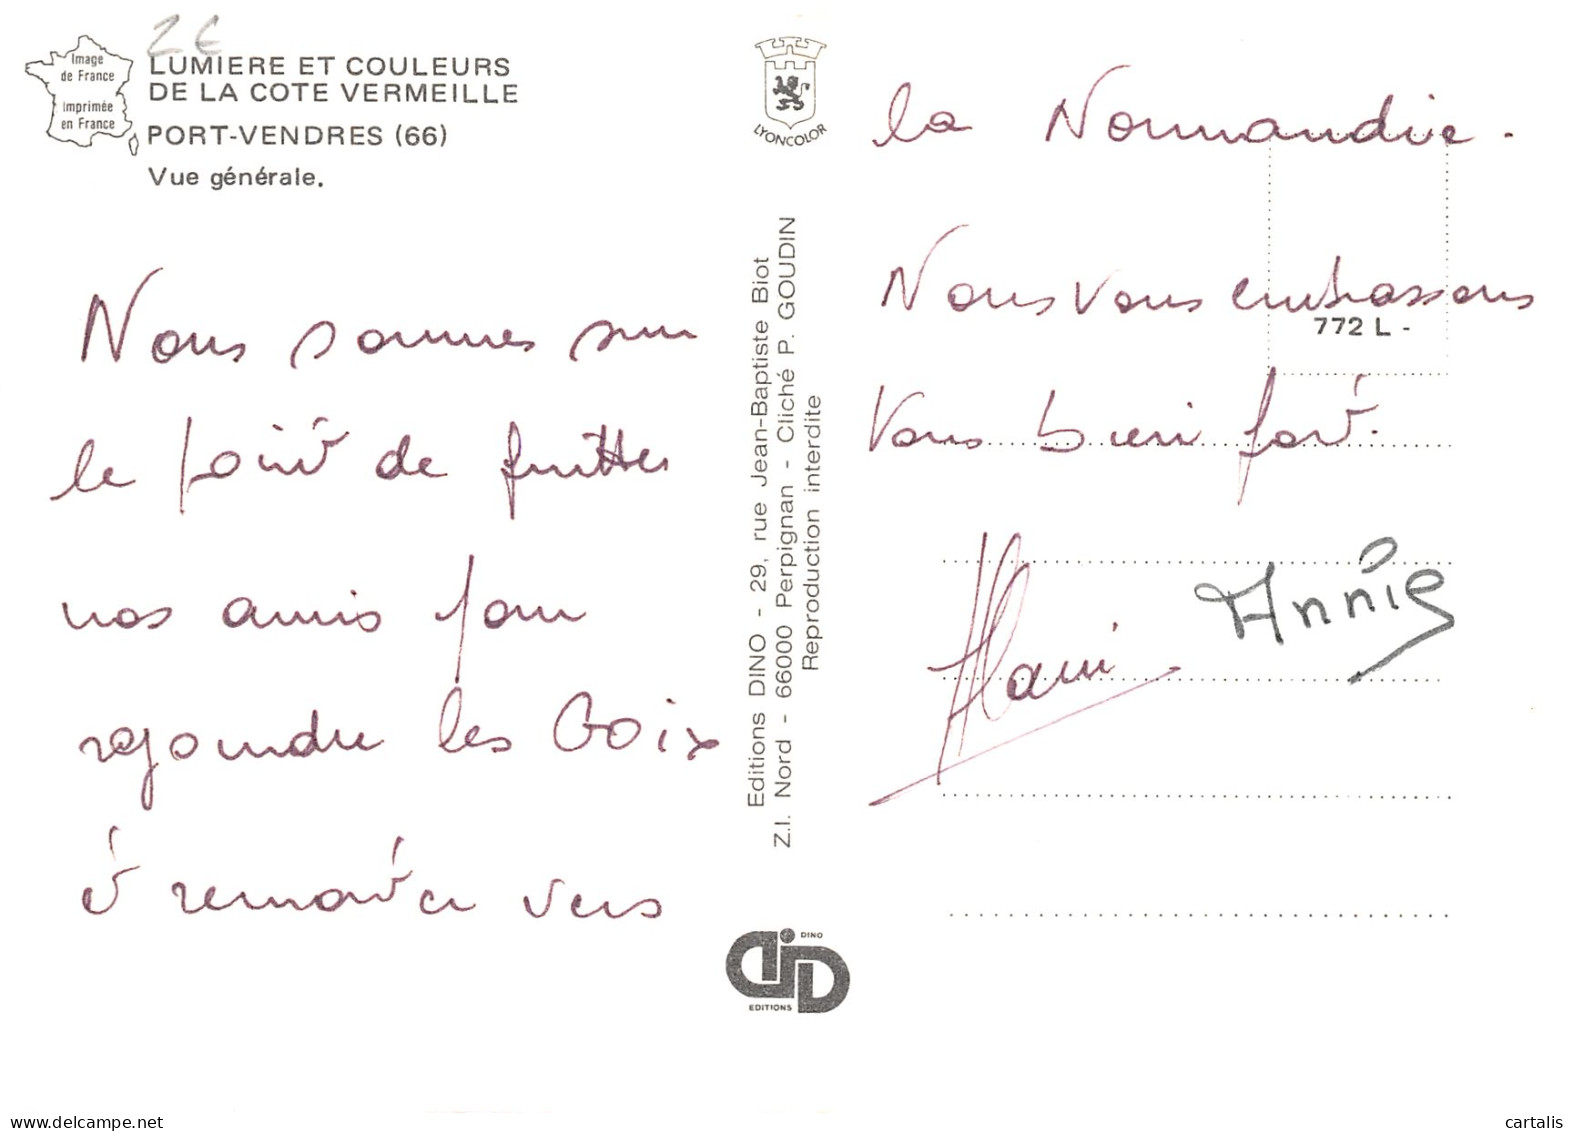 2€
Image
de France
Imprimée
en France
LUMIERE ET COULEURS
DE LA COTE VERMEILLE
PORT-VENDRES (66)
Vue générale.
Nous sommes sur
le point de quitter
nos amis pour
rejoindre les Croix
et remonter vers
LYONCOLOR
Editions DINO - 29, rue Jean-Baptiste Biot
Z.I. Nord - 66000 Perpignan - Cliché P. GOUDIN
Reproduction interdite
DINO
EDITIONS
la Normandie.
Nous vous embrassons
772 L -
Vous bien fort.
Alain
Annie
delcampe.net
cartalis